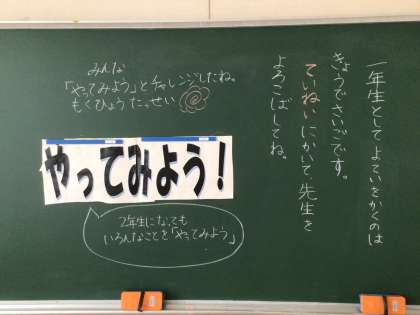 一年生として よていをかくのは
きょうでさいごです。
ていねいにかいて、先生を
よろこばしてね。
みんな
「やってみよう」とチャレンジしたね。
もくひょう たっせい
やってみよう!
2年生になっても
いろんなことを「やってみよう」